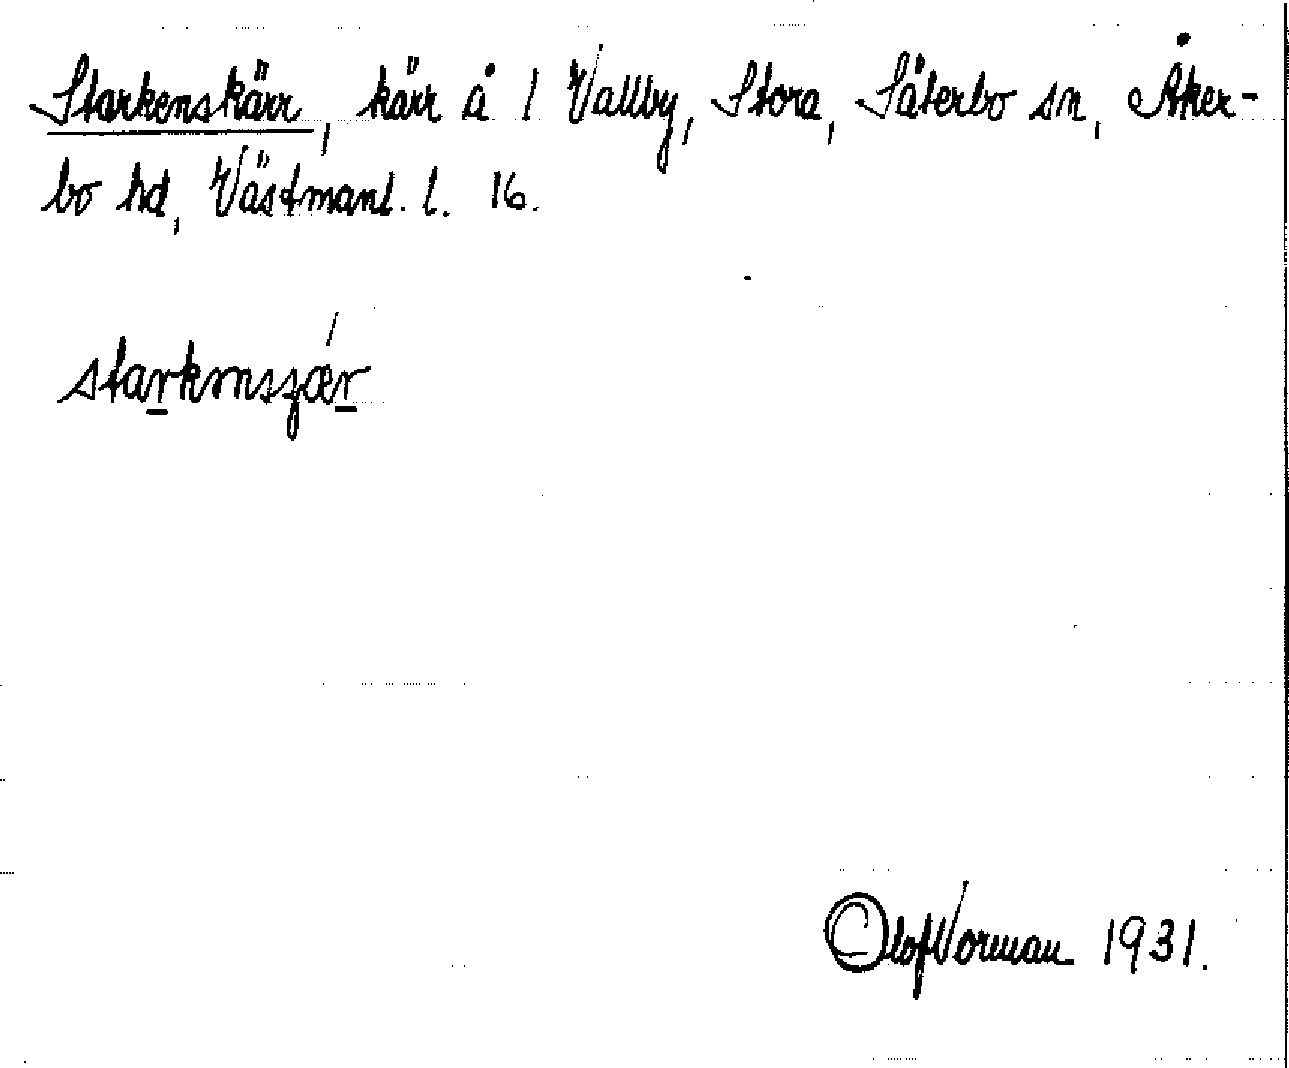 Starkenskärr, kärr å 1 Vallby, Stora, Säterbo sn, Åker-
bo hd, Västmanl. l. 16.
starkənsʒær
Olof Vorman 1931.